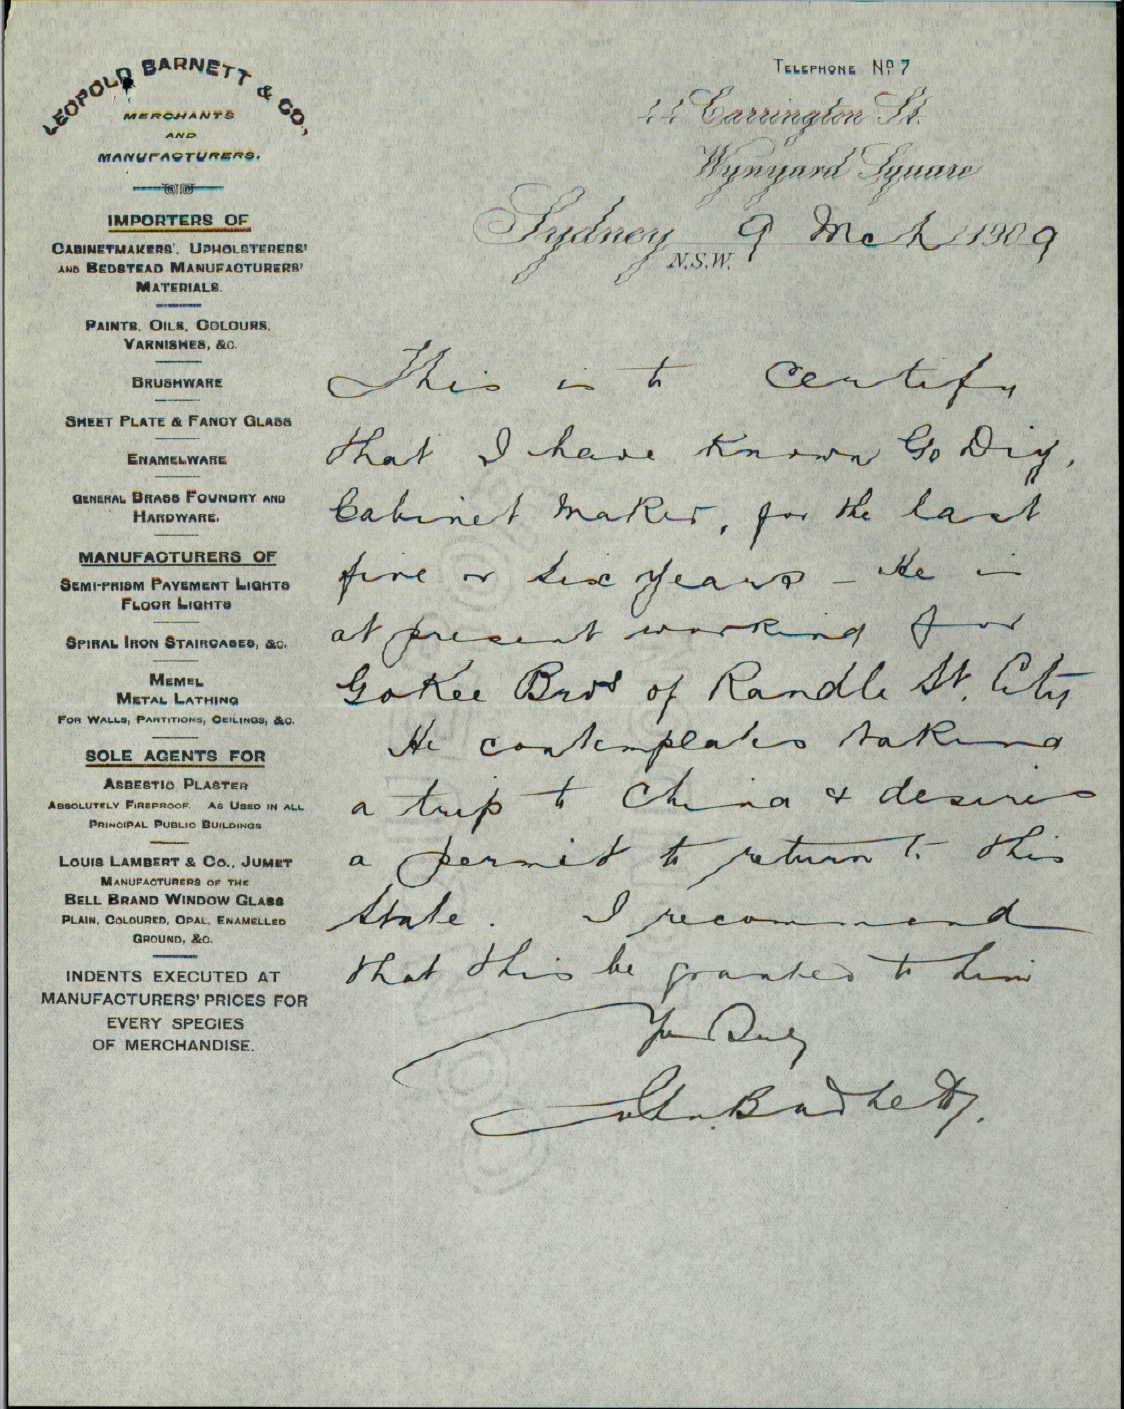 LEOPOLD BARNETT & CO.,
MERCHANTS
AND
MANUFACTURERS.
IMPORTERS OF
CABINETMAKERS', UPHOLSTERERS'
AND BEDSTEAD MANUFACTURERS'
MATERIALS.
PAINTS, OILS, COLOURS,
VARNISHES, &C.
BRUSHWARE
SHEET PLATE & FANCY GLASS
ENAMELWARE
GENERAL BRASS FOUNDRY AND
HARDWARE.
MANUFACTURERS OF
SEMI-PRISM PAVEMENT LIGHTS
FLOOR LIGHTS
SPIRAL IRON STAIRCASES, &C.
MEMEL
METAL LATHING
FOR WALLS, PARTITIONS, CEILINGS, &C.
SOLE AGENTS FOR
ASBESTIC PLASTER
ABSOLUTELY FIREPROOF. AS USED IN ALL
PRINCIPAL PUBLIC BUILDINGS
LOUIS LAMBERT & CO., JUMET
MANUFACTURERS OF THE
BELL BRAND WINDOW GLASS
PLAIN, COLOURED, OPAL, ENAMELLED
GROUND, &C.
INDENTS EXECUTED AT
MANUFACTURERS' PRICES FOR
EVERY SPECIES
OF MERCHANDISE.
TELEPHONE No. 7
44 Carrington St.
Wynyard Square
Sydney 9 Mch 1909
N.S.W.
This is to certify
that I have known Go Diy,
Cabinet Maker, for the last
five or six years – He is
at present working for
GoKee Bros of Randle St. City
He contemplates taking
a trip to China & desires
a permit to return to this
State. I recommend
that this be granted to him
Yrs Duly
John